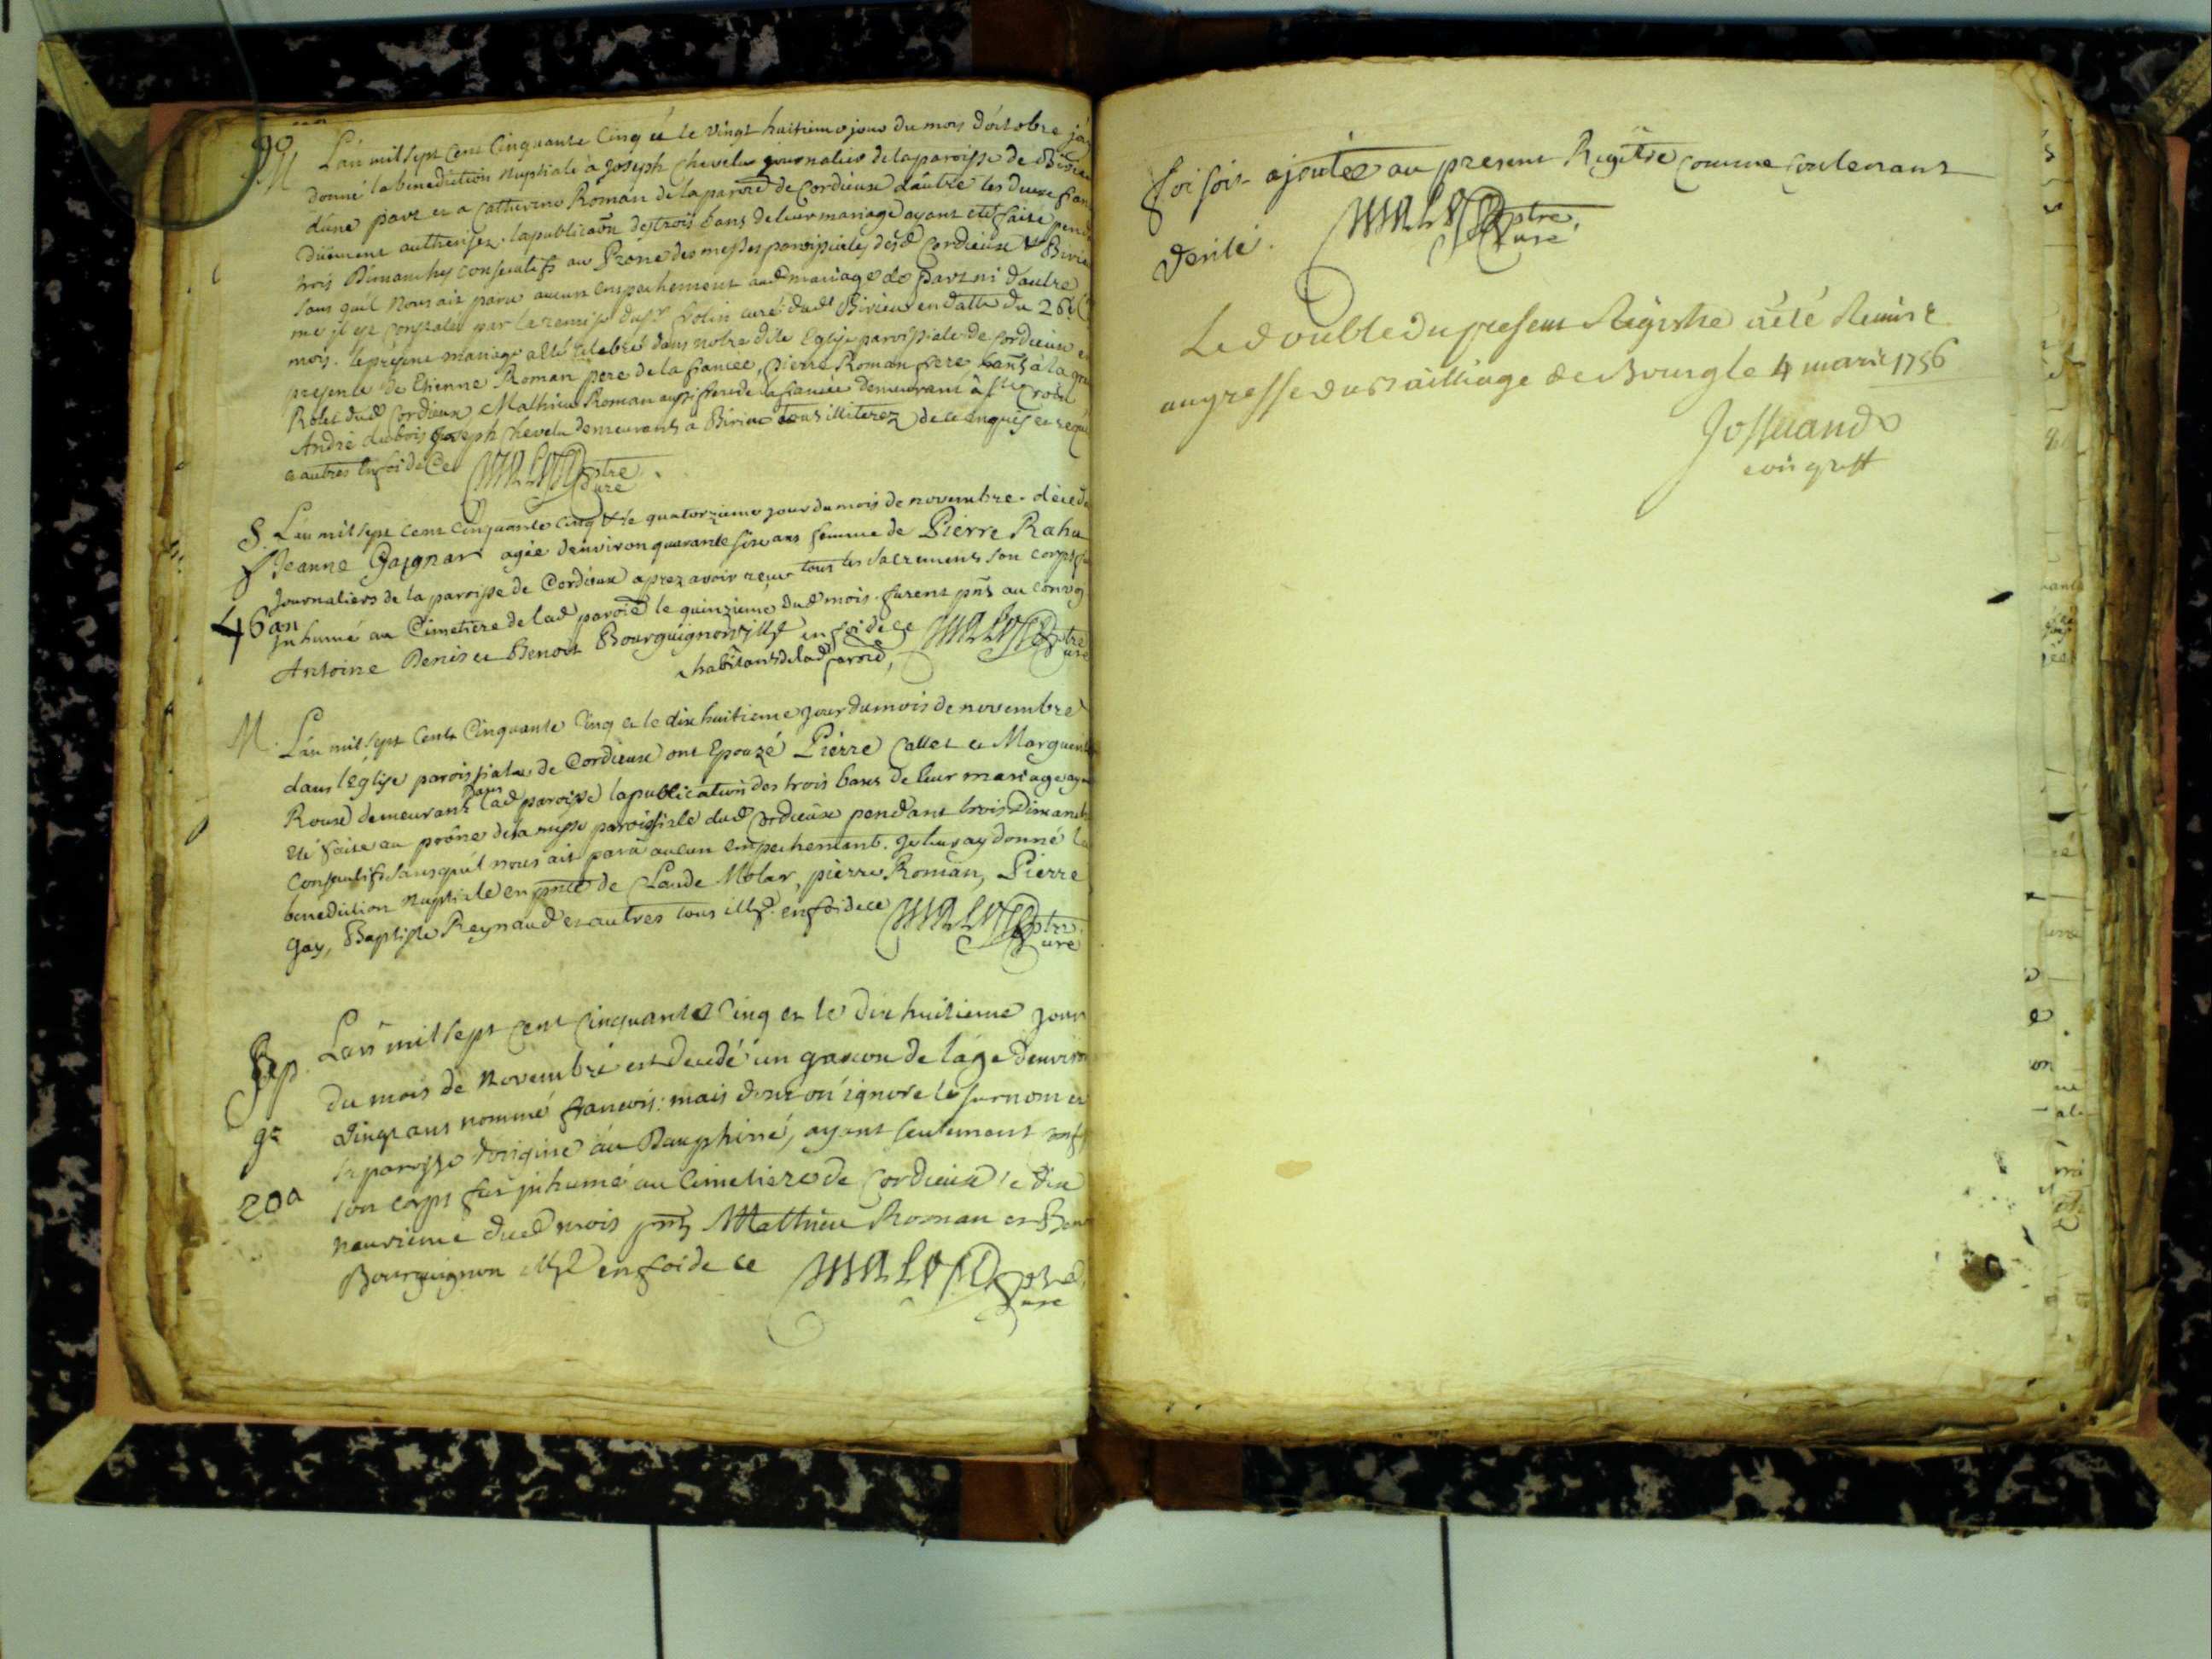 90
M L'an mil sept cent Cinquante Cinq et le vingt huitieme jour du mois d'octobre j'ay
donné la benediction Nuptiale à Joseph Chevelu journalier de la paroisse de Birieu
d'une part et a Catherine Roman de la paroîe de Cordieux d'autre les deux fian
düement authorisez. la publicaôn des trois bans de leur mariage ayant eté faite pend
trois Dimanches consecutifs au Prône des messes paroissiales desd Cordieux et Birieu
sans qu'il nous ait paru aucun empechement aud mariage de part ni d'autre
me il est constaté par la remise du sr folin curé dud Birieu en datte du 26e
mois. le présent mariage a eté celebré dans notre dite Eglise paroissiale de Cordieux en
presence de Etienne Roman pere de la fiancée, Pierre Roman frere à la
dud Cordieux Mathieu Roman aussi frere de la fiancée demeurant à ste Croix
André dubois Joseph Chevelu demeurants a Birieu tous illiterez de ce enquis et requis
e autres en foi de Ce ptre
curé
S. L'an mil sept cent cinquante cinq & le quatorzieme jour du mois de novembre. décedé
Jeanne Gaignar agée d'environ quarante six ans femme de Pierre Raha
journaliers de la paroisse de Cordieux aprez avoir reçu tous les sacrements son corps fu
46 an
Inhumé au Cimetiere de lad paroîe le quinzieme dud mois. furent pñs au convoy
Antoine Denis et Benoit Bourguignon illz en foi de ce ptre
habitants de lad paroîe, curé
M. L'an mil sept Cents Cinquante Cinq et le dix huitieme jour du mois de novembre
dans l'Église paroissiale de Cordieux ont Epouzé Pierre Callet et Marguerit
Roux demeurant dans lad paroisse la publication des trois bans de leur mariage aya
eté faite au prône de la messe paroissiale dud Cordieux pendant trois Dimanch
Consecutifs sans qu'il nous ait paru aucun empechement. je leur ay donné la
benediction Nuptiale en pñce de Claude Molar, pierre Roman, Pierre
Gay, Baptiste Reynaud et autres tous illz. en foi de ce ptre
curé
Sep. L'an mil sept cent Cinquante Cinq et le dix huitieme jour
du mois de Novembre est decedé un garcon de l'áge d'enviro
gn vingt ans nommé francois: mais dont on ignore le surnom et
la paroisse d'origine au Dauphiné, ayant seulement conf
20a son corps fut inhumé au Cimetiere de Cordieux le dix
neuvieme dud mois pñts Matthieu Roman et Ben
Bourguignon illz en foi de ce ptre
curé
foi soit ajoutée au present Regître comme contenant
verité. ptre
curé.
Le double du present Registre a été Remis
au greffe du Bailliage de Bourg le 4 mars 1756